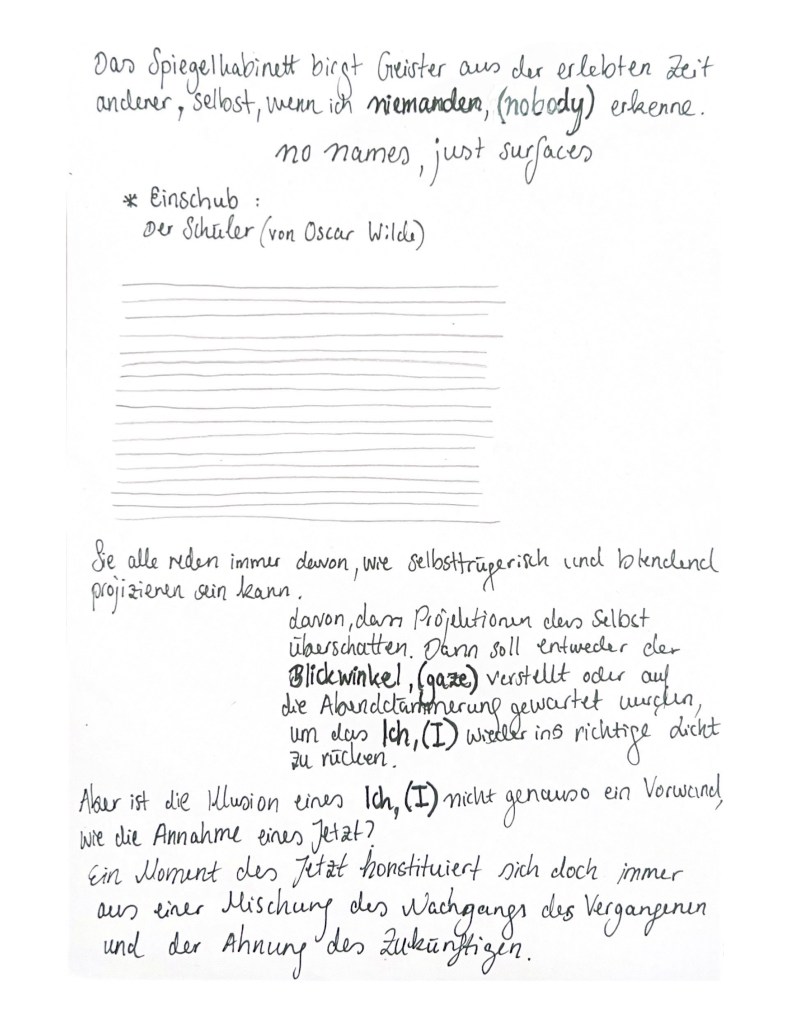 Das Spiegelkabinett birgt Geister aus der erlebten Zeit
anderer, selbst, wenn ich niemanden, (nobody) erkenne.
no names, just surfaces
* Einschub :
Der Schüler (von Oscar Wilde)
Sie alle reden immer davon, wie selbsttrügerisch und blendend
projizieren sein kann.
davon, dass Projektionen das Selbst
überschatten. Dann soll entweder der
Blickwinkel, (gaze) verstellt oder auf
die Abenddämmerung gewartet werden,
um das Ich, (I) wieder ins richtige Licht
zu rücken.
Aber ist die Illusion eines Ich, (I) nicht genauso ein Vorwand,
wie die Annahme eines Jetzt?
Ein Moment des Jetzt konstituiert sich doch immer
aus einer Mischung des Nachgangs des Vergangenen
und der Ahnung des Zukünftigen.